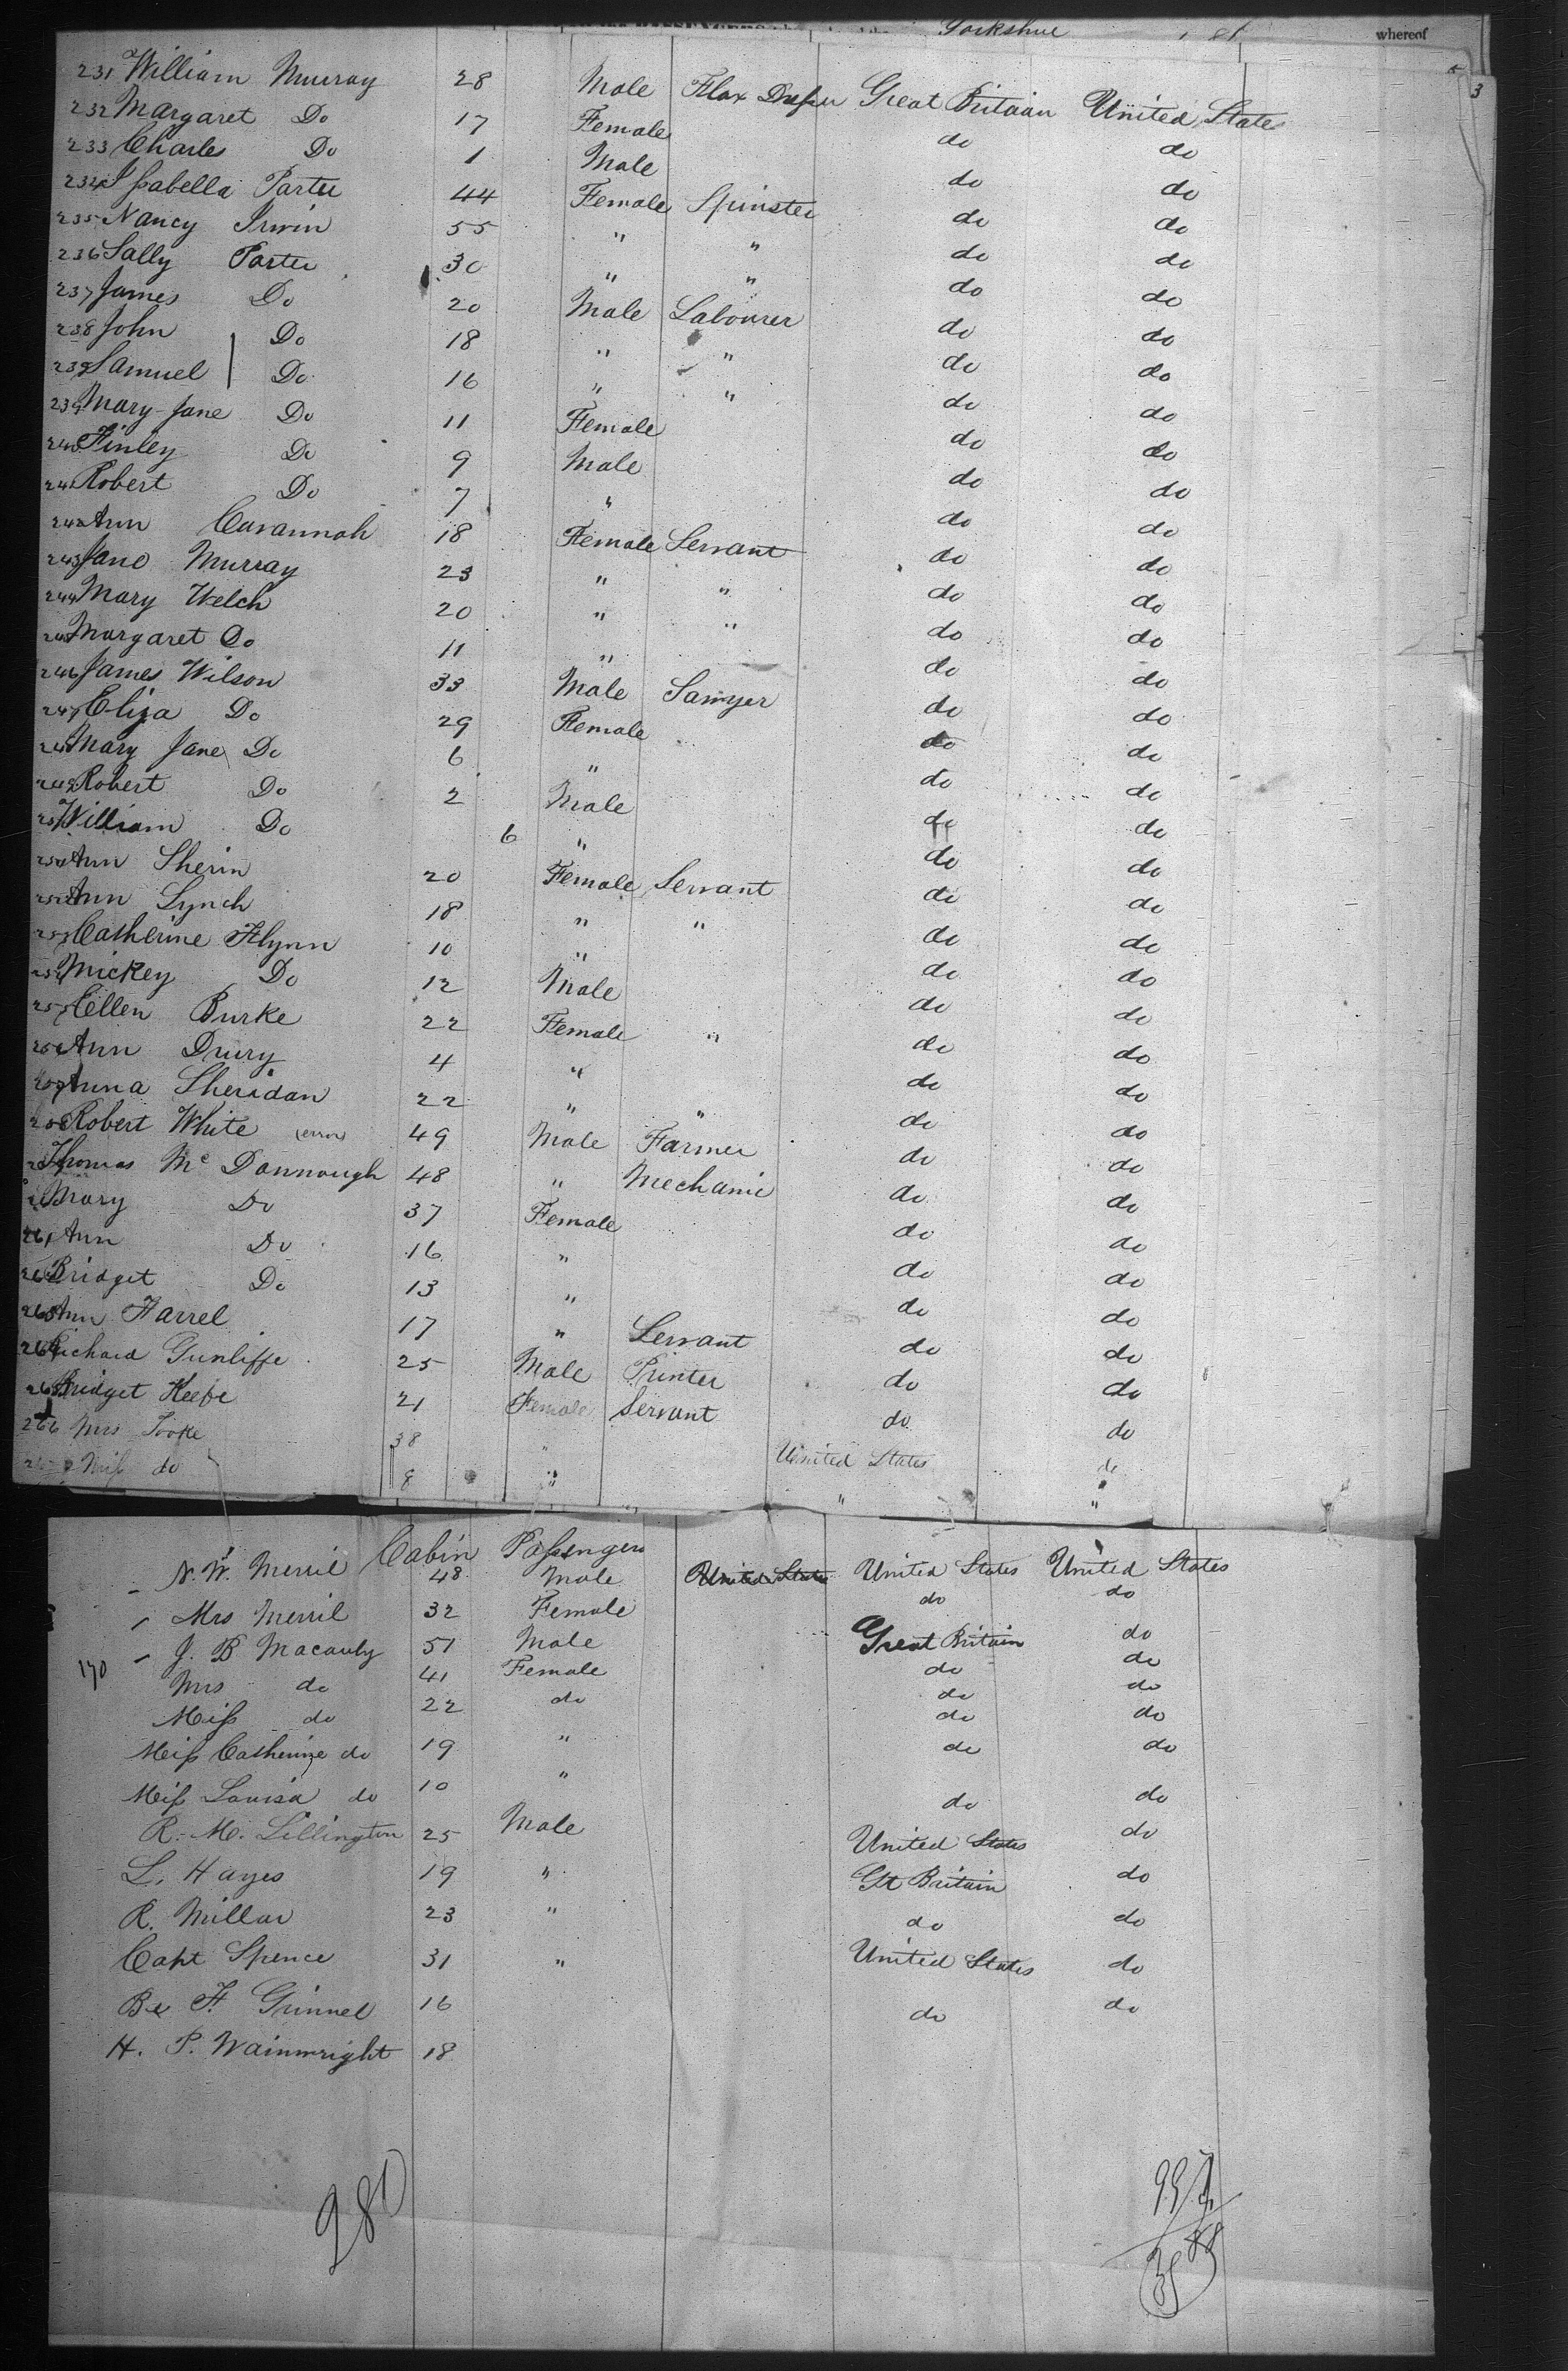 Yorkshire whereof
3
231 William Murray 28 Male Flax Dresser Great Britain United States
232 Margaret Do 17 Female do do
233 Charles Do 1 Male do do
234 Isabella Porter 44 Female Spinster do do
235 Nancy Irwin 55 " " do do
236 Sally Porter 30 " " do do
237 James Do 20 Male Labourer do do
238 John Do 18 " " do do
239 Samuel Do 16 " " do do
239 Mary Jane Do 11 Female do do
240 Finley Do 9 Male do do
241 Robert Do 7 " do do
242 Ann Cavannah 18 Female Servant do do
243 Jane Murray 23 " " do do
244 Mary Welch 20 " " do do
245 Margaret Do 11 " do do
246 James Wilson 33 Male Sawyer do do
247 Eliza Do 29 Female do do
248 Mary Jane Do 6 " do do
249 Robert Do 2 Male do do
250 William Do 6 " do do
251 Ann Sherin 20 Female Servant do do
252 Ann Lynch 18 " " do do
253 Catherine Flynn 10 " do do
254 Mickey Do 12 Male do do
255 Ellen Burke 22 Female " do do
256 Ann Drury 4 " do do
257 Anna Sheridan 22 " " do do
258 Robert White (error) 49 Male Farmer do do
Thomas Mc Donnough 48 " Mechanic do do
Mary Do 37 Female do do
261 Ann Do 16 " do do
262 Bridget Do 13 " do do
263 Ann Farrel 17 " Servant do do
264 Richard Gunliffe 25 Male Printer do do
265 Bridget Keefe 21 Female Servant do do
266 Mrs Tooke 38 " United States do
Miss do 8 " " "
Cabin Passengers
N. W. Merril 48 Male United States United States United States
Mrs Merril 32 Female do do
170 J. B Macauly 51 Male Great Britain do
Mrs do 41 Female do do
Miss do 22 do do do
Miss Catherine do 19 " do do
Miss Louisa do 10 " do do
R. M. Lillington 25 Male United States do
L. Hayes 19 " Gt Britain do
R. Millar 23 " do do
Capt Spence 31 " United States do
F. Grinnel 16 do do
H. P. Wainwright 18
981